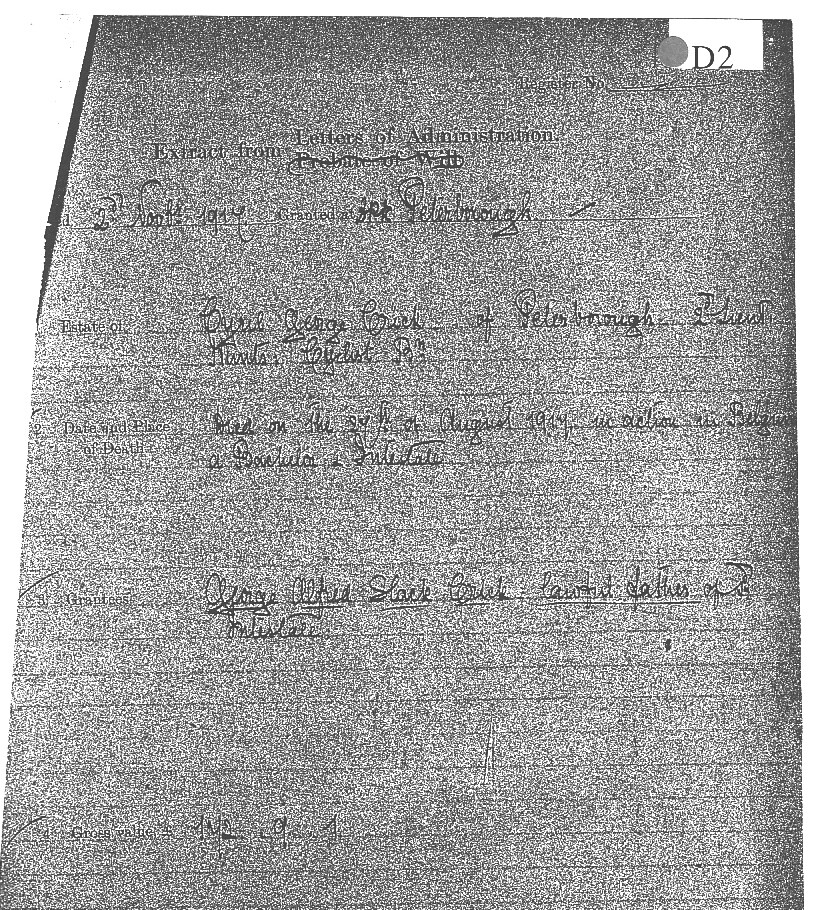 D2
Register No
Letters of Administration
Extract from Probate or Will
2nd Novbr 1917 Granted at Peterborough
Estate of Cyril George Crick of Peterborough 2nd Lieut
Hunts. Cyclist Bn
2 Date and Place of Death Died on the 27th of August 1917 in action in Belgium
a Bachelor & Intestate
3 Grantee George Alfred Slack Crick Lawful father of
Intestate
4 Gross value £ 172 9 1